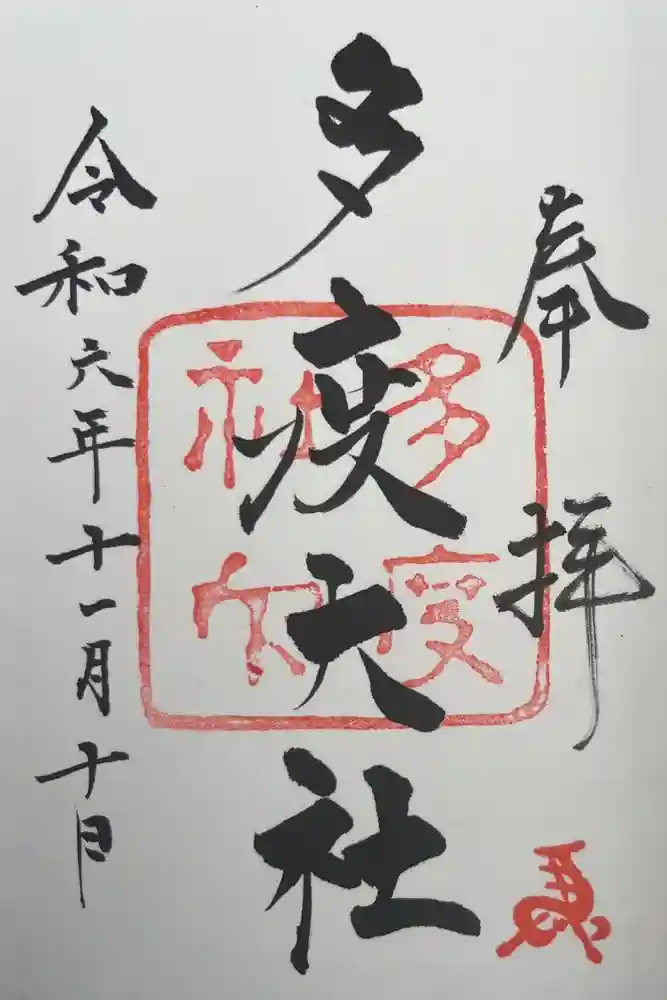 奉拝
多度大社
多度
社印
令和六年十一月十日